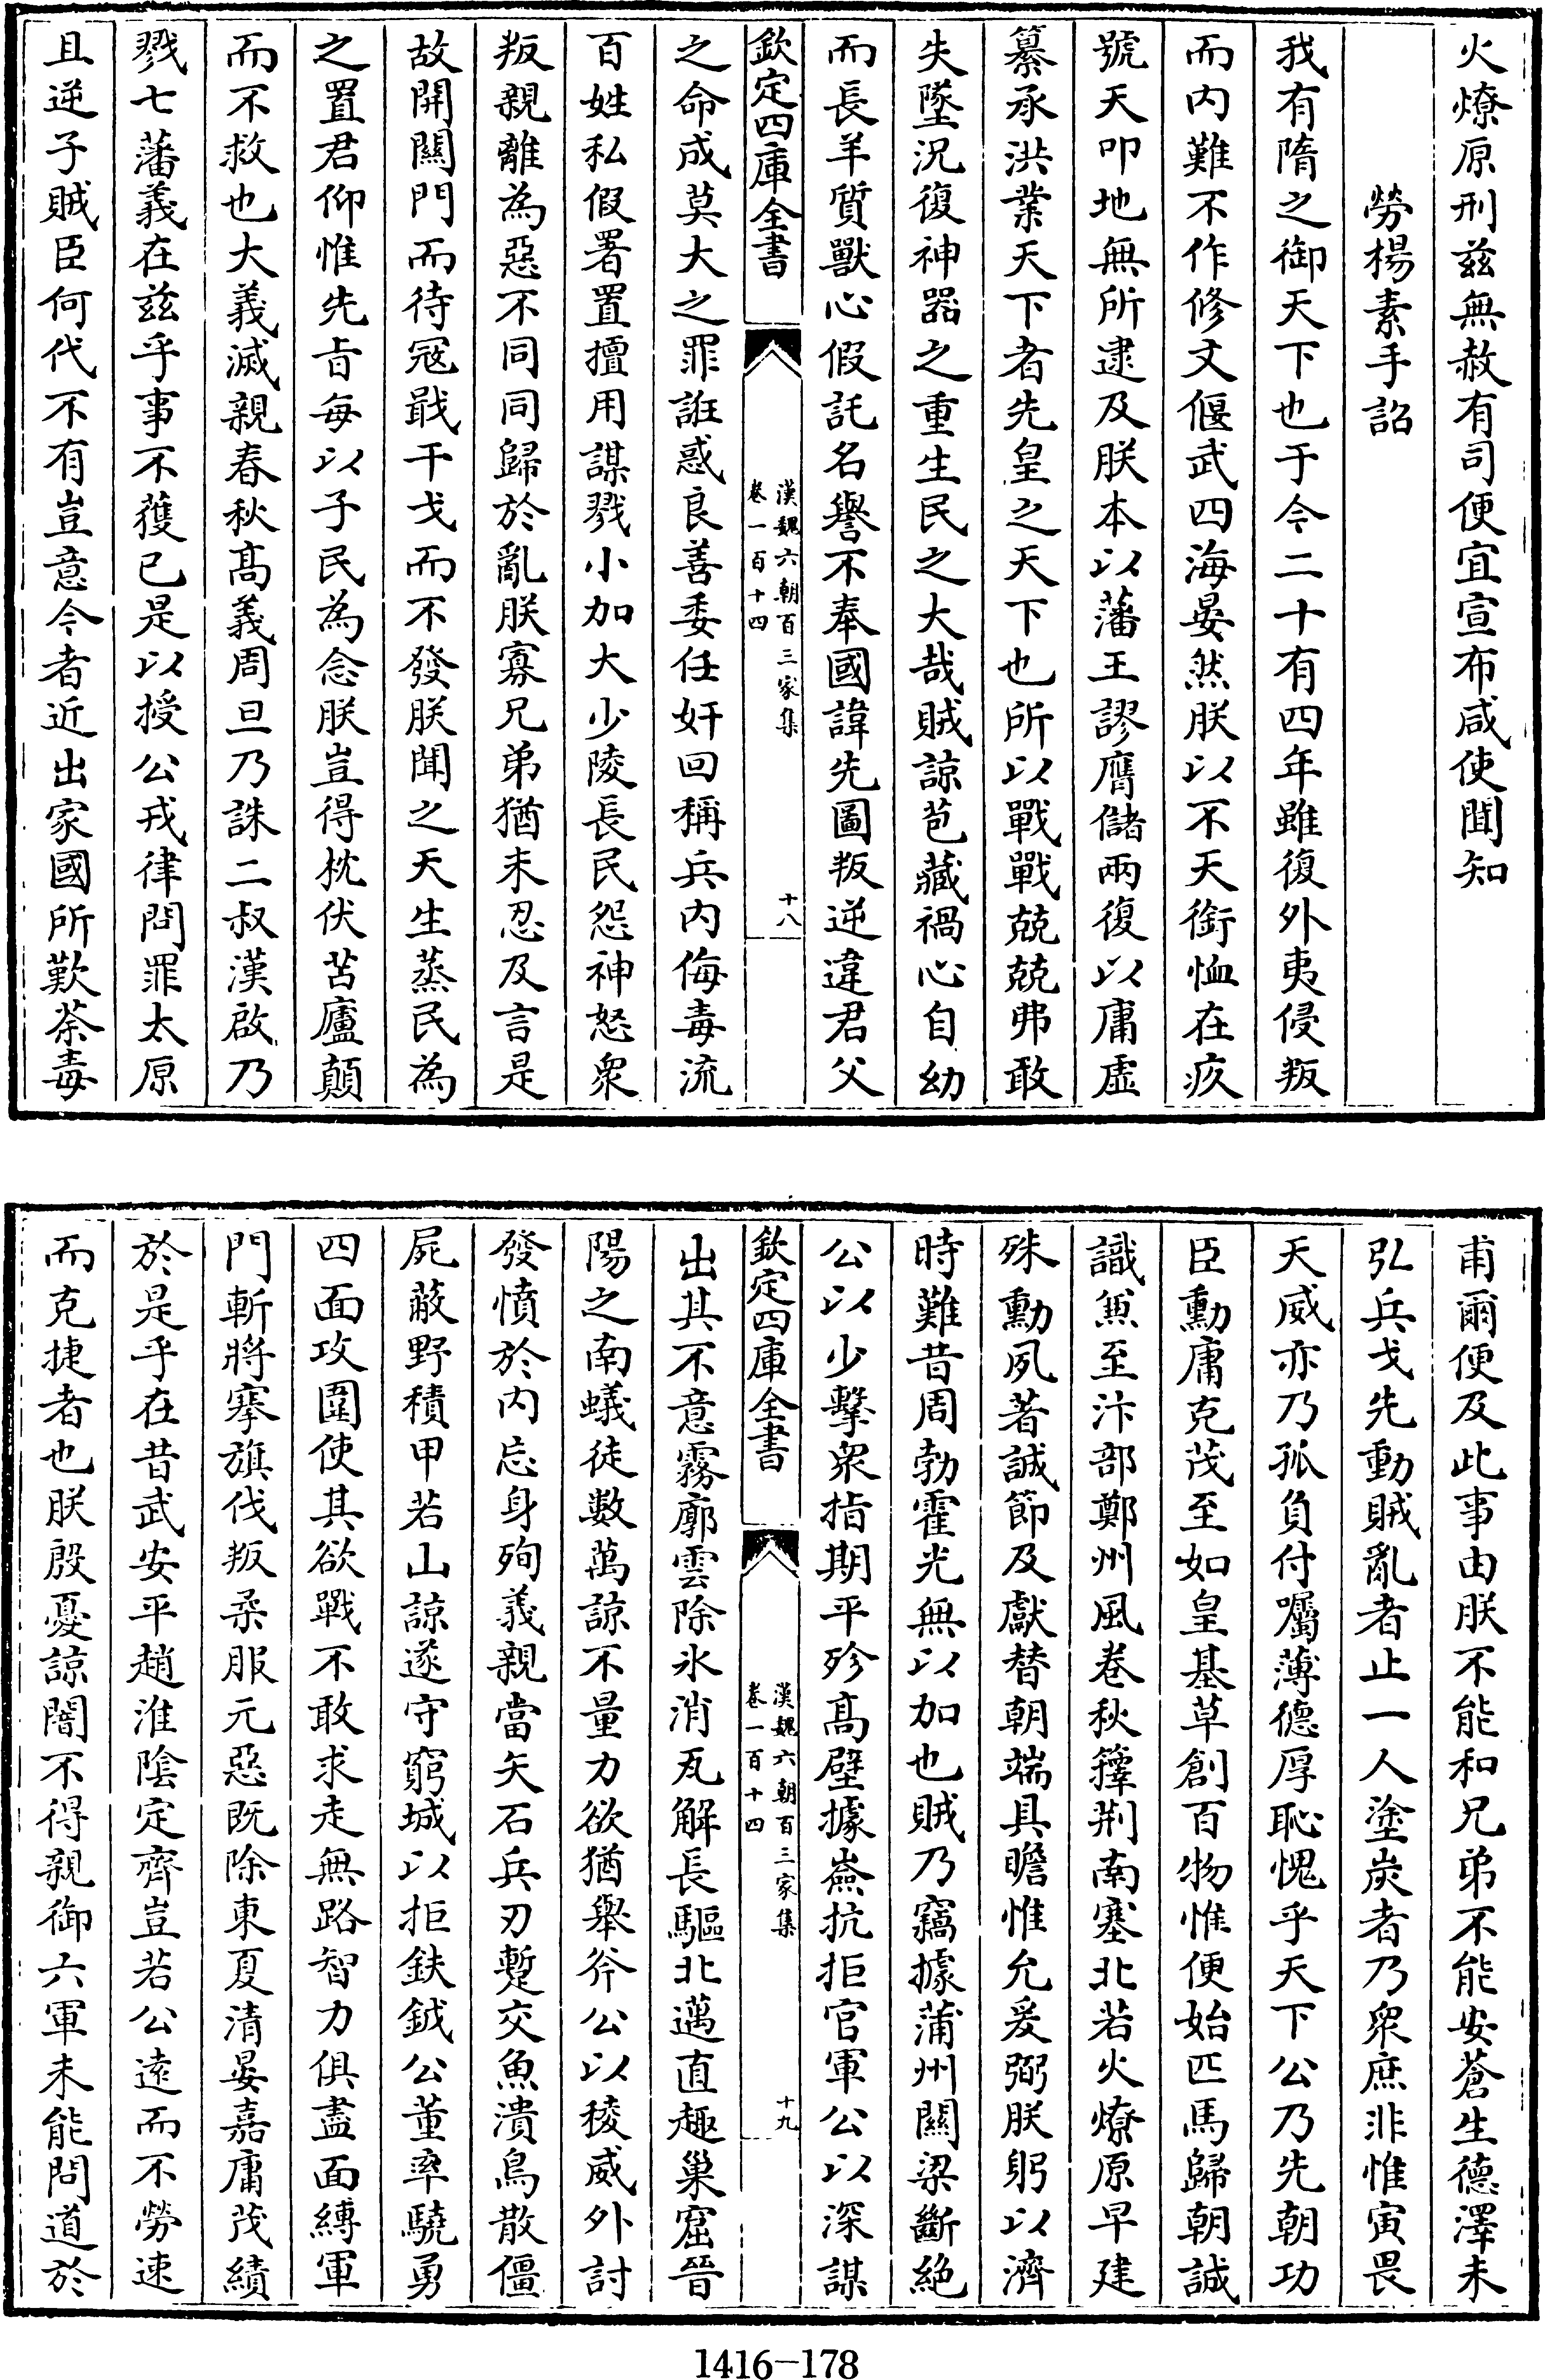 火燎原刑兹無赦有司便宜宣布咸使聞知
勞楊素手詔
我有隋之御天下也于今二十有四年雖復外夷侵叛
而内難不作修文偃武四海晏然朕以不天銜恤在疚
號天叩地無所逮及朕本以藩王謬膺儲兩復以庸虛
纂承洪業天下者先皇之天下也所以戰戰兢兢弗敢
失墜況復神器之重生民之大哉賊諒苞藏禍心自幼
而長羊質獸心假託名譽不奉國諱先圖叛逆違君父
欽定四庫全書
漢魏六朝百三家集
卷一百十四
十八
之命成莫大之罪誑惑良善委任奸回稱兵内侮毒流
百姓私假署置擅用謀戮小加大少陵長民怨神怒衆
叛親離為惡不同同歸於亂朕寡兄弟猶未忍及言是
故開關門而待寇戢干戈而不發朕聞之天生蒸民為
之置君仰惟先㫖每以子民為念朕豈得枕伏苫廬顛
而不救也大義滅親春秋髙義周旦乃誅二叔漢啟乃
戮七藩義在兹乎事不獲已是以授公戎律問罪太原
且逆子賊臣何代不有豈意今者近出家國所歎荼毒
甫爾便及此事由朕不能和兄弟不能安蒼生德澤未
弘兵戈先動賊亂者止一人塗炭者乃衆庶非惟寅畏
天威亦乃孤負付囑薄德厚恥愧乎天下公乃先朝功
臣勳庸克茂至如皇基草創百物惟便始匹馬歸朝誠
識兼至汴部鄭州風卷秋籜荆南塞北若火燎原早建
殊勳夙著誠節及獻替朝端具瞻惟允爰弼朕躬以濟
時難昔周勃霍光無以加也賊乃竊據蒲州關梁斷絶
公以少擊衆指期平殄髙壁據嶮抗拒官軍公以深謀
欽定四庫全書
漢魏六朝百三家集
卷一百十四
十九
出其不意霧廓雲除氷消瓦解長驅北邁直趣巢窟晉
陽之南蟻徒數萬諒不量力欲猶舉斧公以稜威外討
發憤於内忘身殉義親當矢石兵刃蹔交魚潰鳥散僵
屍蔽野積甲若山諒遂守窮城以拒鈇鉞公董率驍勇
四面攻圍使其欲戰不敢求走無路智力俱盡面縛軍
門斬將搴旗伐叛柔服元惡既除東夏清晏嘉庸茂績
於是乎在昔武安平趙淮陰定齊豈若公逺而不勞速
而克捷者也朕殷憂諒闇不得親御六軍未能問道於
1416-178